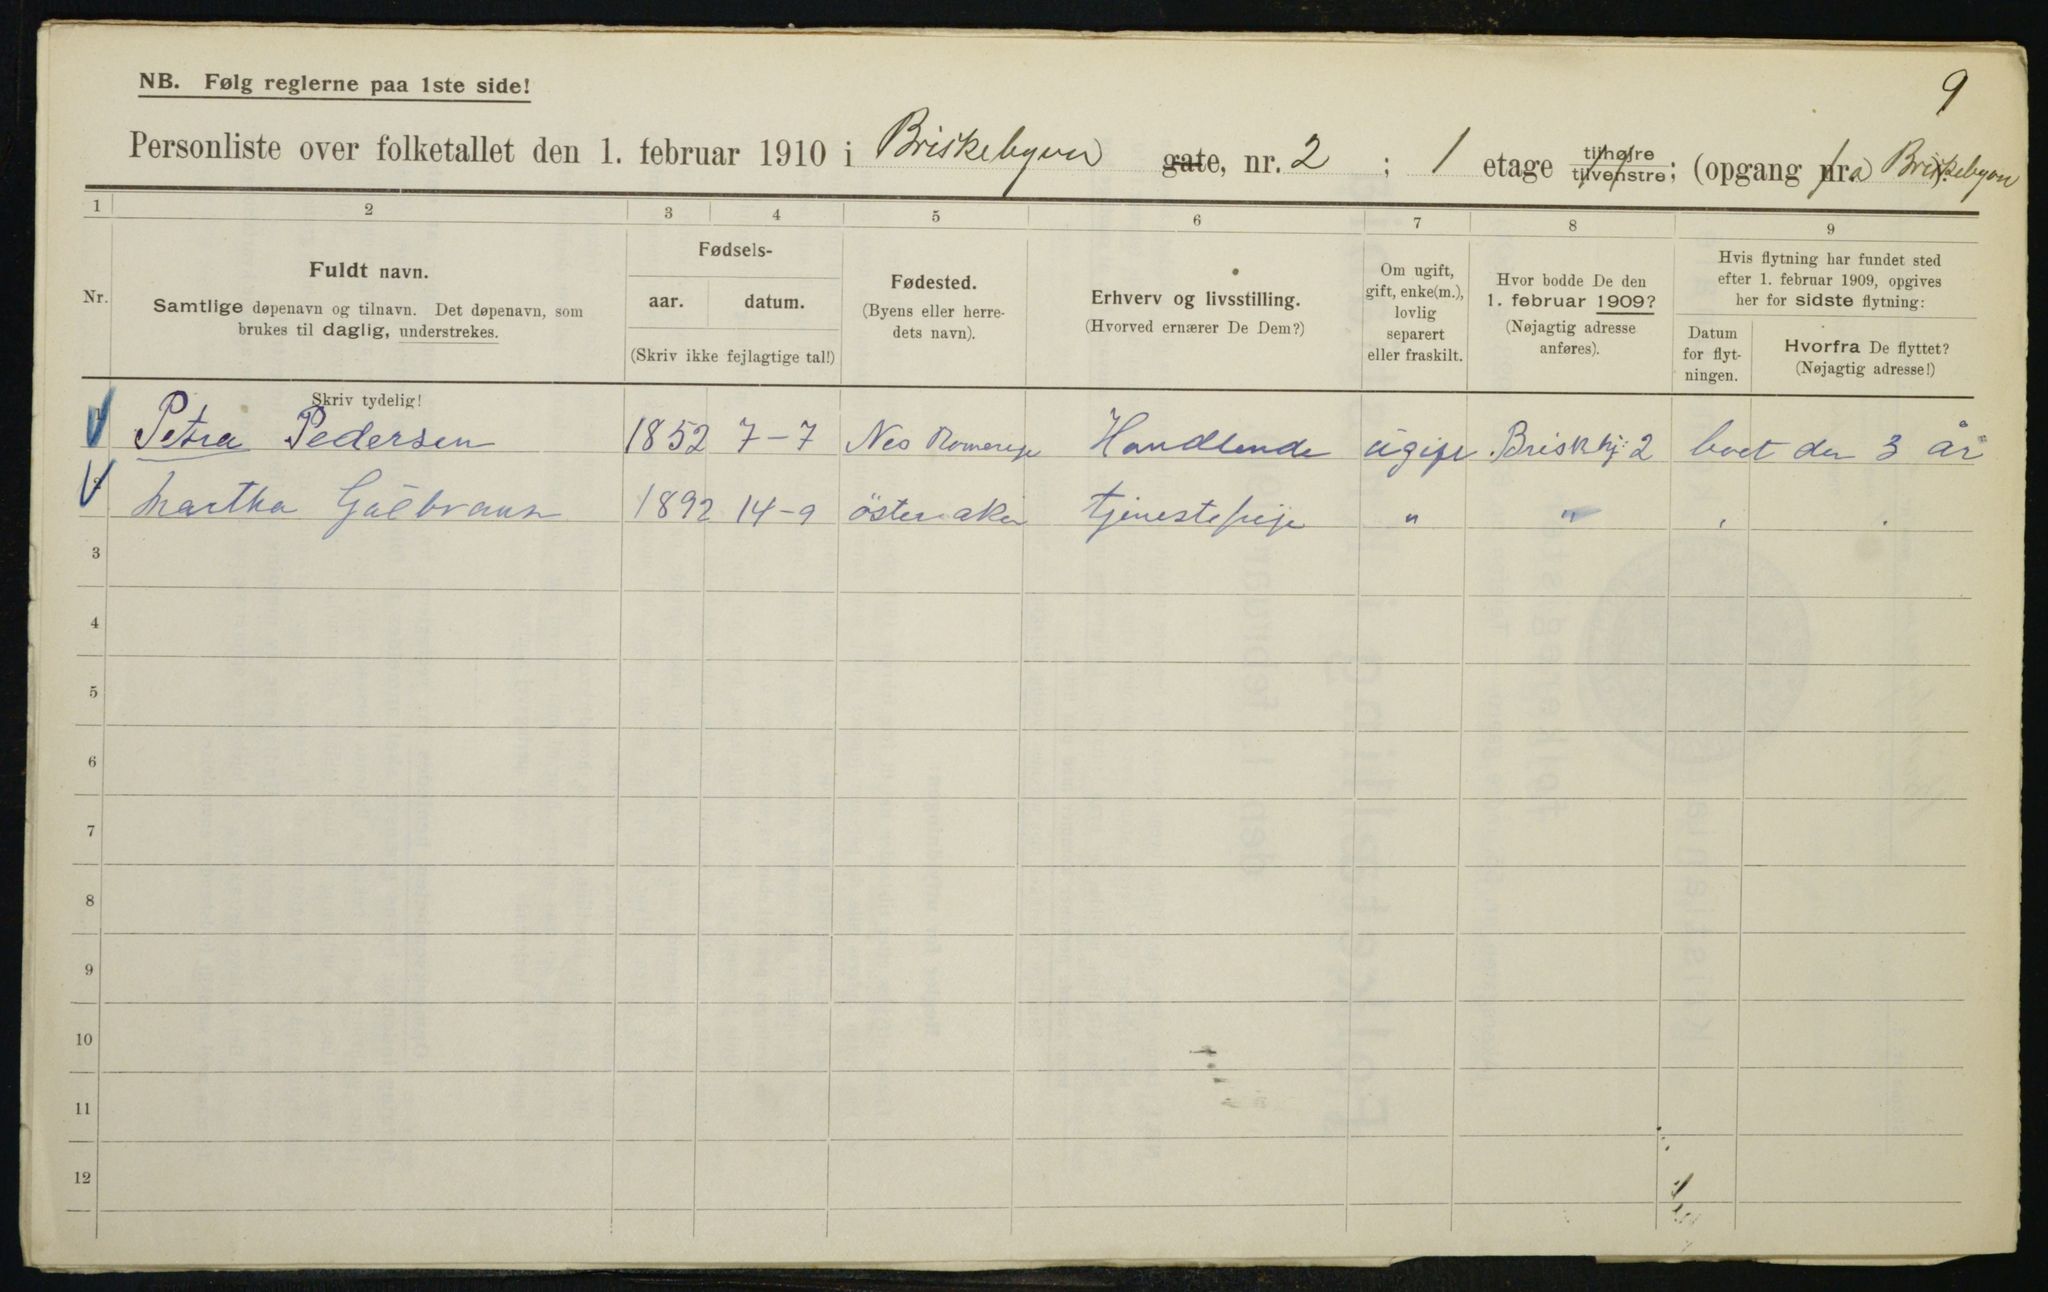 9
NB. Følg reglerne paa 1ste side!
Personliste over folketallet den 1. februar 1910 i Briskebyvn gate, nr. 2 ; 1 etage tilhøjre tilvenstre; (opgang fra Briskebyvn
1 2 3 4 5 6 7 8 9
Nr.
Fuldt navn.
Samtlige døpenavn og tilnavn. Det døpenavn, som
brukes til daglig, understrekes.
Fødsels-
aar. datum.
(Skriv ikke fejlagtige tal!)
Fødested.
(Byens eller herre-
dets navn).
Erhverv og livsstilling.
(Hvorved ernærer De Dem?)
Om ugift,
gift, enke(m.),
lovlig
separert
eller fraskilt.
Hvor bodde De den
1. februar 1909?
(Nøjagtig adresse
anføres).
Hvis flytning har fundet sted
efter 1. februar 1909, opgives
her for sidste flytning:
Datum
for flyt-
ningen.
Hvorfra De flyttet?
(Nøjagtig adresse!)
Skriv tydelig!
Petra Pedersen 1852 7-7 Nes Romerije Handlende ugift Briskbj: 2 boet der 3 år
Martha Gulbransn 1892 14-9 östenaker tjenestepije " "
3
4
5
6
7
8
9
10
11
12